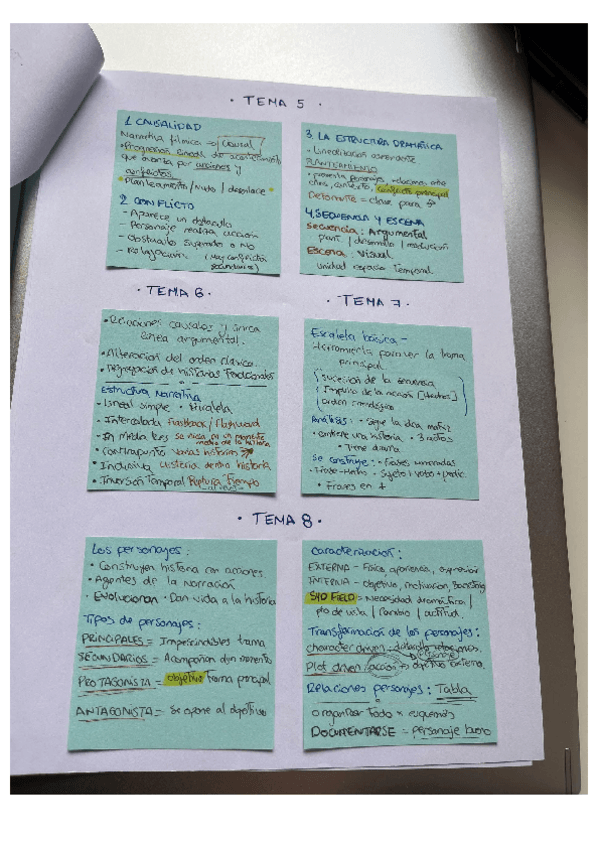 · TEMA 5 ·
1. CAUSALIDAD
Narrativa fílmica → Causal
· Progresión lineal de acontecimientos
que avanza por acciones y
conflictos.
· Planteamiento / Nudo / desenlace ·
2. CONFLICTO
- Aparece un obstáculo
- Personaje realiza acción
- Obstáculo superado o NO
(Más conflictos
secundarios)
3. LA ESTRUCTURA DRAMÁTICA
PLANTEAMIENTO
conflicto principal
Detonante = clave para
4. SEQUENCIA Y ESCENA
Secuencia: Argumental
plant. / desarrollo / resolución
Escena: Visual
unidad espacio temporal
· TEMA 6 ·
· Relaciones causales y única
línea argumental.
· Alteración del orden clásico.
Estructura Narrativa
- Lineal simple · Paralela
- Intercalada Flashback / Flashforward
- In Media Res
medio de la historia
· Contrapunto varias historias
· Inclusiva historia dentro historia
· Inversión Temporal Ruptura tiempo
· TEMA 7 ·
Escaleta básica -
Herramienta para ver la trama
principal
Sucesión de la secuencia
Impulso de la acción [Hechos]
Orden cronológico
Análisis: · Sigue la idea matriz
· contiene una historia · 3 actos
· Tiene drama
Se construye: · Frases numeradas
· Sujeto + verbo + predic.
· Frases en +
· TEMA 8 ·
Los personajes:
· Construyen historia con acciones.
· Agentes de la narración
· Evolucionan · Dan vida a la historia
Tipos de personajes:
PRINCIPALES = Imprescindibles trama
SECUNDARIOS = Acompañan algún momento
PROTAGONISTA = objetivo trama principal
ANTAGONISTA = Se opone al objetivo
Caracterización:
EXTERNA - Física, apariencia, expresión
INTERNA - objetivo, motivación, backstory
SYD FIELD = Necesidad dramática /
pto de vista / cambio / actitud.
Transformación de los personajes:
character driven -
Plot driven / acción → objetivo externo.
Relaciones personajes: Tabla
organizar todo x esquemas
DOCUMENTARSE = personaje bueno